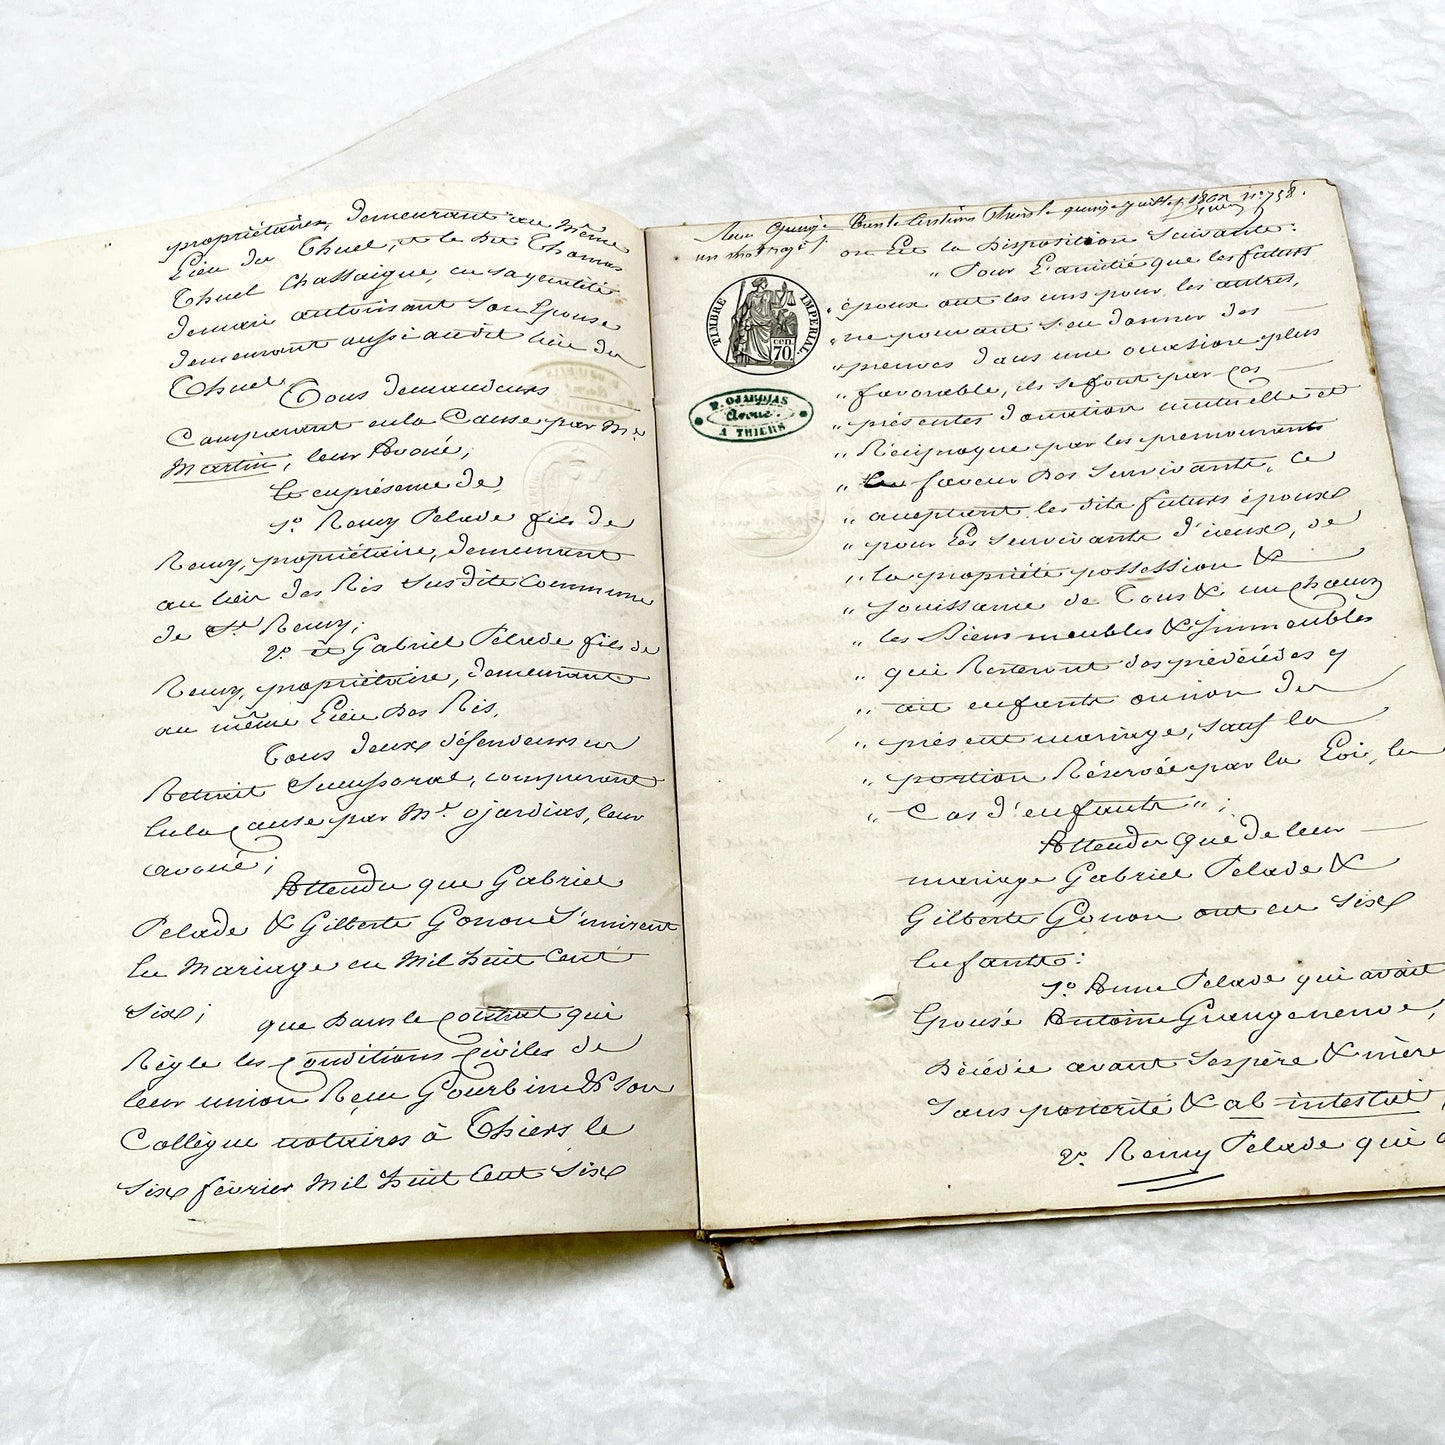 propriétaires, demeurant au même
Lieu du Thuel, et le dit Thomas
Thuel Chassaigue, en sa qualité
demari autorisant son Epouse
demeurant aussi audit lieu du
Thuel,
Tous demandeurs
Comparant en la Cause par Mr
Martin, leur Avoué;
Et en présence de,
1o. Remy Pelade fils de
Remy, propriétaire, demeurant
au lieu des Ris susdite Commune
de St. Remy;
2o. et Gabriel Pelade fils de
Remy, propriétaire, demeurant
au même Lieu des Ris,
Tous deux défendeurs en
Retrait Successoral, comparant
en la Cause par Mr. Ojardias, leur
avoué;
Attendu que Gabriel
Pelade & Gilberte Gonon S'unirent
en Mariage en Mil huit Cent
Six;
que dans le Contrat qui
Règle les Conditions Civiles de
leur union Reçu Gourbine & Son
Collègue notaires à Thiers le
Six février Mil huit Cent Six
Reçu quinze
on lit la disposition Suivante:
TIMBRE IMPERIAL
70 cen
OJARDIAS
Avoué
A THIERS
„ Pour L'amitié que les futurs
„ époux ont les uns pour les autres,
„ ne pouvant s'en donner des
„ preuves dans une occasion plus
„ favorable, ils se font par Ces
„ présentes donation mutuelle et
„ Réciproque par les premourants
„ en faveur des Survivants, ce
„ acceptant les dits futurs époux
„ pour Les Survivants d'iceux, de
„ la propriété possession &
„ Jouissance de Tous & un chacun
„ les Biens meubles & Immeubles
„ que Resteront des prédécédés y
„ ait enfants ou non du
„ présent mariage, sauf la
„ portion Réservée par la Loi, en
„ Cas d'enfants „;
Attendu que de leur
mariage Gabriel Pelade &
Gilberte Gonon ont eu Six
Enfants:
1o. Anne Pelade qui avait
Epousé Antoine Grangeneuve,
Décédée avant Ses père & mère
Sans postérité & ab intestat,
2o. Remy Pelade qui a